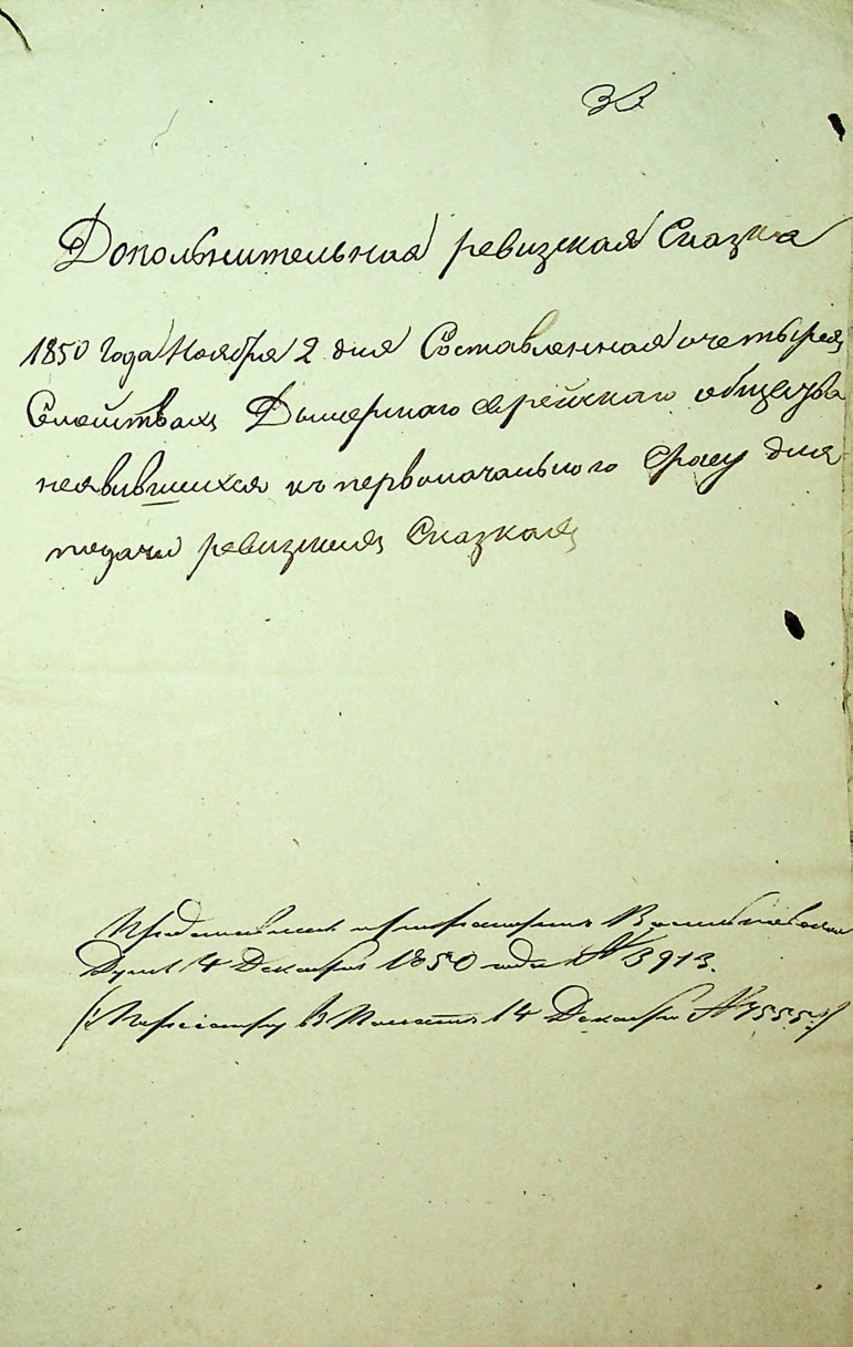 33
Дополнительная ревизская Сказка
1850 Года Ноября 2 дня Составленная о четырех
Семействах Дымерскаго еврейскаго общества
неявившихся къ первоначальному сроку для
подачи ревизских Сказках
Представлена при рапорте
Думы 4 Декабря 1850 года № 3913.
14 Декабря №